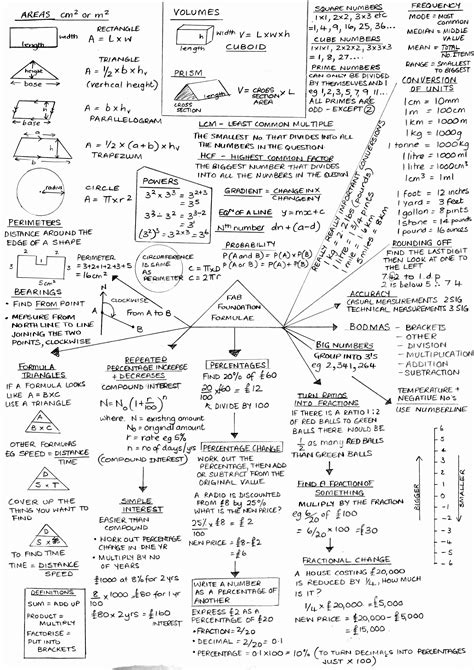 AREAS cm² or m²
RECTANGLE
A = L x W
length
width
TRIANGLE
A = ½ x b x hᵥ
(vertical height)
height
base
A = b x hᵥ
PARALLELOGRAM
base
A = ½ x (a+b) x hᵥ
TRAPEZIUM
CIRCLE
A = π x r²
radius
PERIMETERS
DISTANCE AROUND THE
EDGE OF A SHAPE
PERIMETER
= 3+2+1+2+3+5
= 16cm
BEARINGS
• FIND FROM POINT
• MEASURE FROM
NORTH LINE TO LINE
JOINING THE TWO
POINTS, CLOCKWISE
N
CLOCKWISE
from A to B
A
B
VOLUMES
V = L x w x h
CUBOID
length
width
h
PRISM
V = CROSS SECTION AREA x L
CROSS SECTION
LCM - LEAST COMMON MULTIPLE
THE SMALLEST No THAT DIVIDES INTO ALL
THE NUMBERS IN THE QUESTION
HCF - HIGHEST COMMON FACTOR
THE BIGGEST NUMBER THAT DIVIDES
INTO ALL THE NUMBERS IN THE QUESTION
POWERS
GRADIENT = CHANGE IN X
CHANGE IN Y
EQⁿ OF A LINE y = mx + c
Nᵗʰ number dn + (a-d)
PROBABILITY
P(A and B) = P(A) x P(B)
P(A or B) = P(A) + P(B)
CIRCUMFERENCE
IS SAME
AS
PERIMETER
C = πD
C = 2πr
SQUARE NUMBERS
1x1, 2x2, 3x3 etc
= 1, 4, 9, 16, 25, 36...
CUBE NUMBERS
1x1x1, 2x2x2, 3x3x3
= 1, 8, 27...
PRIME NUMBERS
CAN ONLY BE DIVIDED
BY THEMSELVES AND 1
eg 1, 2, 3, 5, 7, 9, 11...
ALL PRIMES ARE
ODD - EXCEPT 2
FREQUENCY
MODE = MOST
COMMON
MEDIAN = MIDDLE
VALUE
MEAN = TOTAL
No ITEMS
RANGE = SMALLEST
TO BIGGEST
CONVERSION
OF UNITS
1cm = 10mm
1m = 100cm
1km = 1000m
1kg = 1000g
1 tonne = 1000kg
1 litre = 1000ml
1 litre = 1000cm³
1cm³ = 1ml
1 foot = 12 inches
1 yard = 3 feet
1 gallon = 8 pints
1 stone = 14 pounds
1 pound = 16 ounces
REALLY REALLY IMPORTANT CONVERSIONS
ROUNDING OFF
FIND THE LAST DIGIT
THEN LOOK AT ONE TO
THE LEFT
7.62 to 1 d.p
2 is below 5 ∴ 7.6
ACCURACY
CASUAL MEASUREMENTS 2 SIG
TECHNICAL MEASUREMENTS 3 SIG
FAB
FOUNDATION
FORMULAE
BODMAS - BRACKETS
- OTHER
- DIVISION
- MULTIPLICATION
- ADDITION
- SUBTRACTION
BIG NUMBERS
GROUP INTO 3'S
eg 2,341,264
TEMPERATURE +
NEGATIVE No'S
USE NUMBERLINE
BIGGER
SMALLER
FORMULA
TRIANGLES
IF A FORMULA LOOKS
LIKE A = B x C
USE A TRIANGLE
A
B x C
OTHER FORMULAS
EG SPEED = DISTANCE
TIME
D
S x T
COVER UP THE
THINGS YOU WANT TO
FIND
TO FIND TIME
TIME = DISTANCE
SPEED
DEFINITIONS
SUM = ADD UP
PRODUCT =
MULTIPLY
FACTORISE =
PUT INTO
BRACKETS
REPEATED
PERCENTAGE INCREASE
+ DECREASES
COMPOUND INTEREST
where, N = existing amount
N₀ = original amount
r = rate eg 5%
n = no of days/yrs
(COMPOUND INTEREST)
SIMPLE
INTEREST
EASIER THAN
COMPOUND
• WORK OUT PERCENTAGE
CHANGE IN ONE YR
• MULTIPLY BY NO
OF YEARS
£1000 at 8% for 2 yrs
8/100 x 1000 = £80 for 1 yr
£80 x 2 yrs = £160
INTEREST
PERCENTAGES
FIND 20% of £60
20/100 x 60 = £12
DIVIDE BY 100
PERCENTAGE CHANGE
WORK OUT THE
PERCENTAGE, THEN ADD
OR SUBTRACT FROM THE
ORIGINAL VALUE
A RADIO IS DISCOUNTED
FROM £8 by 25%
WHAT IS THE NEW PRICE?
25% x £8 = £2
NEW PRICE = £8 - £2
= £6
WRITE A NUMBER
AS A PERCENTAGE OF
ANOTHER
EXPRESS £2 AS A
PERCENTAGE OF £20
• FRACTION = 2/20
• DECIMAL = 2/20 = 0.1
• PERCENTAGE = 0.1 x 100 = 10% (TO TURN DECIMALS INTO PERCENTAGES
JUST X 100)
TURN RATIOS
INTO FRACTIONS
IF THERE IS A RATIO 1:2
OF RED BALLS TO GREEN
BALLS THERE WOULD BE
½ as many RED BALLS
THAN GREEN BALLS
FIND A FRACTION OF
SOMETHING
MULTIPLY BY THE FRACTION
eg 6/20 of £100
= 6/20 x 100 = £30
FRACTIONAL CHANGE
A HOUSE COSTING £20,000
IS REDUCED BY ¼, HOW MUCH
IS IT?
¼ x £20,000 = £5,000
NEW PRICE = £20,000 - £5,000
= £15,000